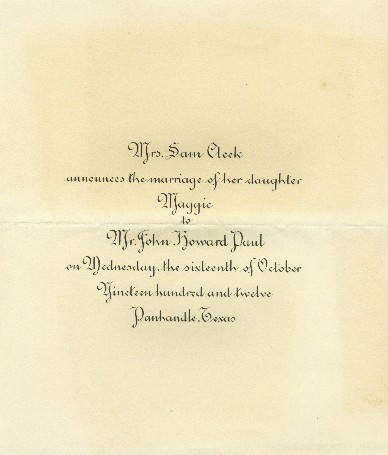 Mrs. Sam Cleek
announces the marriage of her daughter
Maggie
to
Mr. John Howard Paul
on Wednesday, the sixteenth of October
Nineteen hundred and twelve
Panhandle, Texas